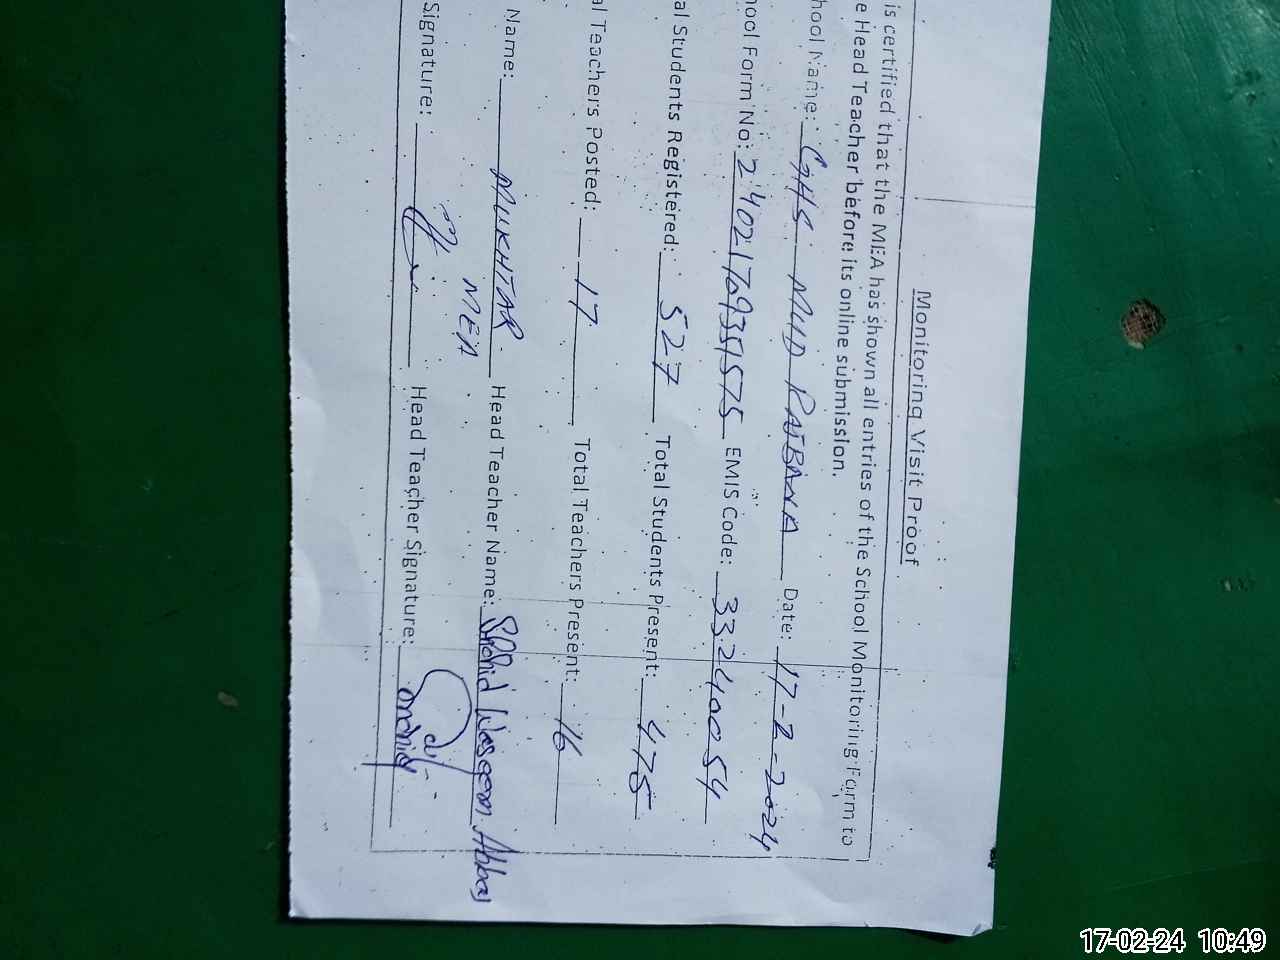 Monitoring Visit Proof
is certified that the MEA has shown all entries of the School Monitoring Form to
e Head Teacher before its online submission.
hool Name: GHS MHD RAJBANA Date: 17-2-2024
hool Form No: 24021769351575 EMIS Code: 33240054
al Students Registered: 527 Total Students Present: 475
al Teachers Posted: 17 Total Teachers Present: 16
Name: MUKHTAR Head Teacher Name: Shahid Waseem Abbas
MEA
Signature: Head Teacher Signature:
17-02-24 10:49